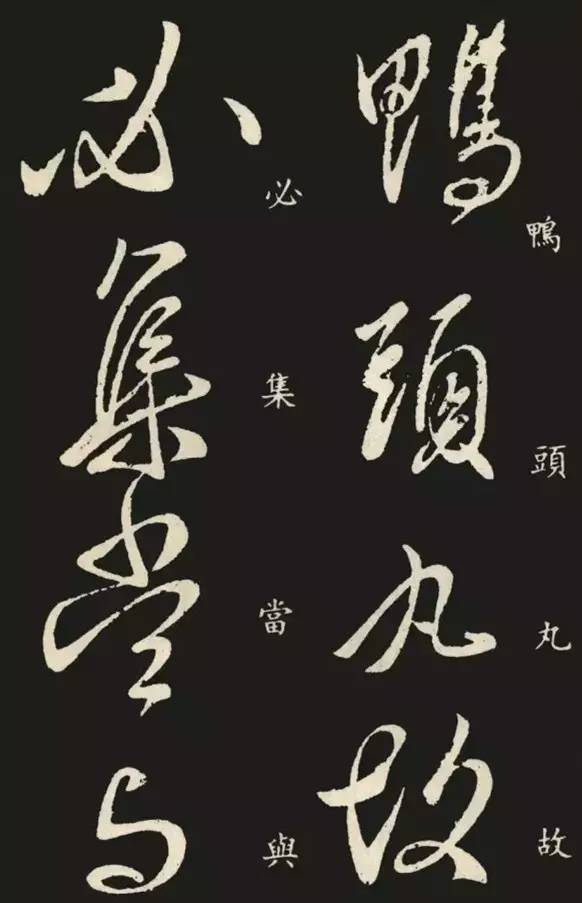 鴨頭丸故
鴨頭丸故
必集當與
必集當與